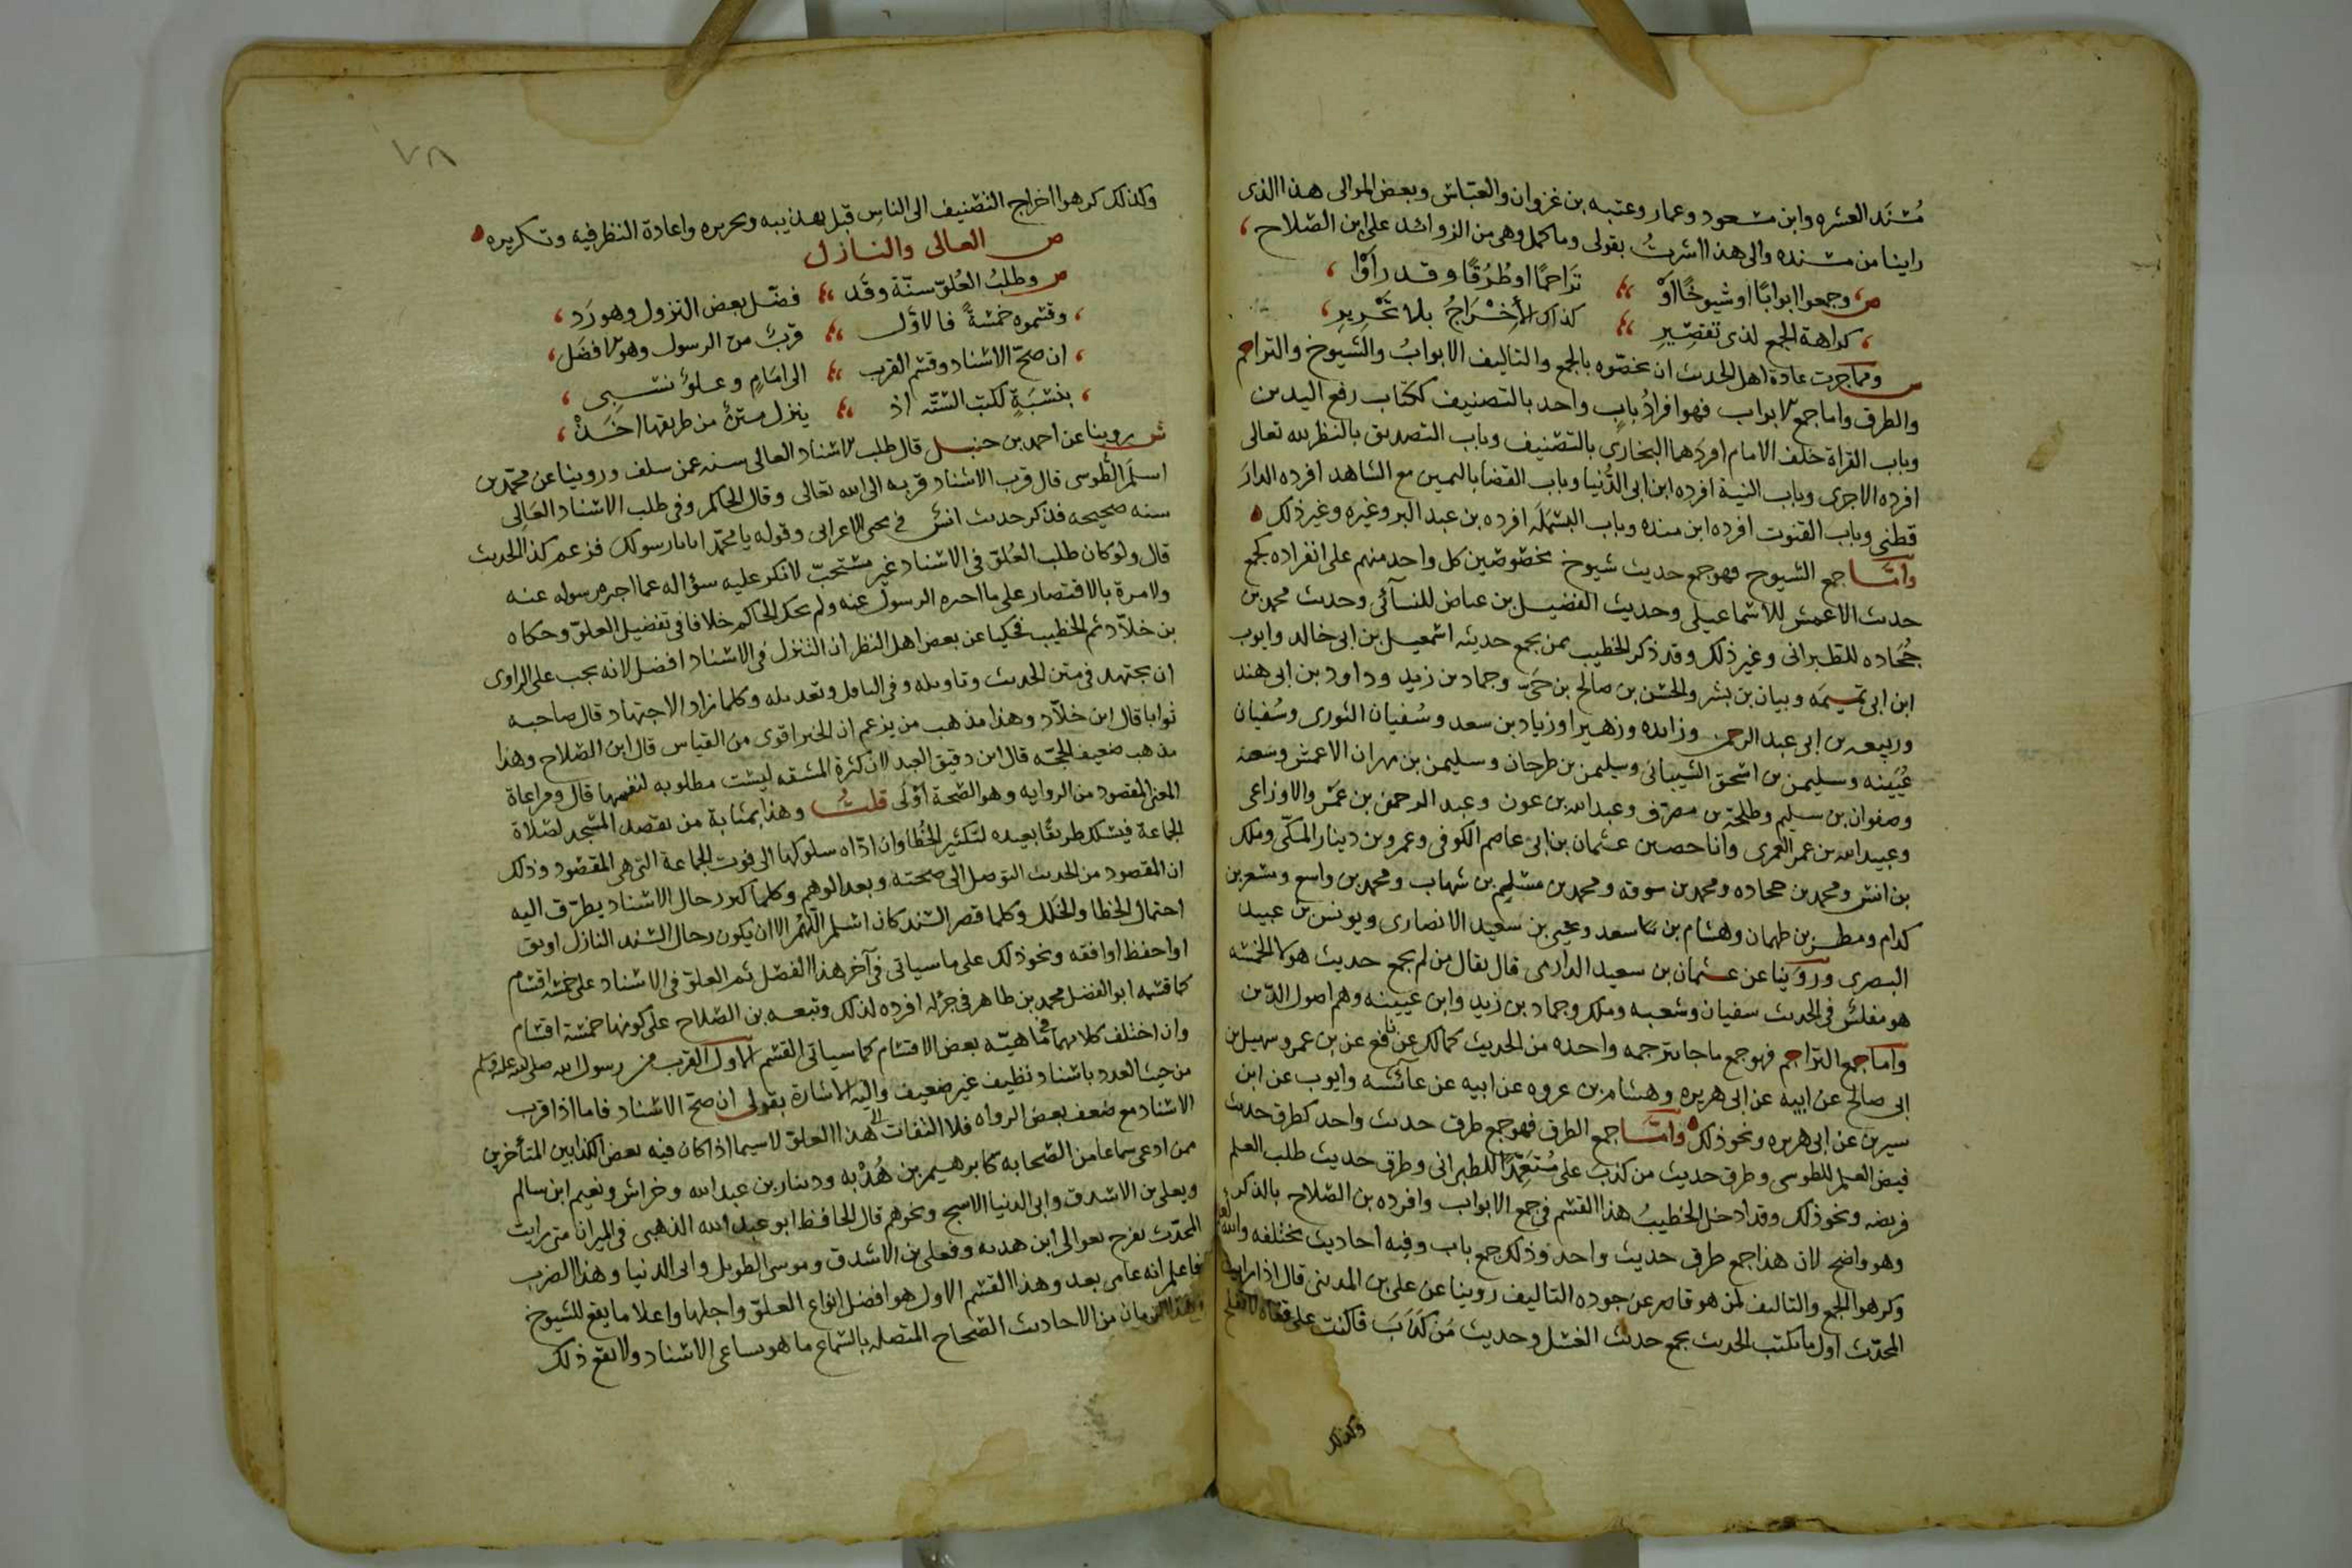 مسند العشره وابن مسعود وعمار وعتبه بن غزوان والعباس وبعض الموالى هذا الذى
راينا من مسنده والى هذا اشرت بقولى وما كمل وهى من الزوائد على ابن الصلاح
ص وجمعوا ابوابًا او شيوخًا اوْ تَراجمًا او طُرُقًا وقد راَوْا
كراهة الجمع لذى تقصِيرِ كذاك الأِخْرَاجُ بلا تَحْرِيرِ
ش ومما جرت عادة اهل الحديث ان يخصّوه بالجمع والتاليف الابوابُ والشيوخ والتراجم
والطرق واما جمع الابواب فهو افرادُ بابٍ واحد بالتصنيف ككتاب رفع اليدين
وباب القراة خلف الامام افردهما البخارى بالتصنيف وباب التصديق بالنظر لله تعالى
افرده الاجرى وباب النية افرده ابن ابى الدُّنيا وباب القضا باليمين مع الشاهد افرده الدار
قطنى وباب القنوت افرده ابن منده وباب البسمَلَه افرده بن عبد البر وغيره وغير ذلك
وامّا جمع الشيوخ فهو جمع حديث شيوخ مخصوصين كل واحد منهم على انفراده كجمع
حديث الاعمش للاسماعيلى وحديث الفضيل بن عياض للنسآئى وحديث محمد بن
جُحَاده للطبرانى وغير ذلك وقد ذكر الخطيب ممن يجمع حديثه اسمعيل بن ابى خالد وايوب
ابن ابى تميمَه وبيان بن بشر والحسن بن صالح بن حَىّ وحماد بن زيد وداود بن ابى هند
وربيعه بن ابى عبد الرحمن وزائده وزهير وزياد بن سعد وسُفيان الثورى وسُفيان
عُيَينه وسليمن بن اسحق الشيبانى وسليمن بن طرخان وسليمن بن مهران الاعمش وشعبه
وصفوان بن سليم وطلحة بن مصرّف وعبد الله بن عون وعبد الرحمن بن عَمْر والاوزاعى
وعبيد الله بن عمر العمرى وابا حصين عثمان بن ابى عاصم الكوفى وعمرو بن دينار المكّى وملك
بن انس ومحمد بن جحاده ومحمد بن سوقه ومحمد بن مسلم بن شهاب ومحمد بن واسع ومسعر بن
كدام ومطر بن طهمان وهشام بن سعد ويحيى بن سعيد الانصارى ويونس بن عبيد
البصرى وروَينا عن عثمان بن سعيد الدارمى قال يقال من لم يجمع حديث هولا الخمسه
هو مفلس فى الحديث سفيان وشعبه وملك وحماد بن زيد وابن عيينه وهم اصول الدّين
واما جمع التراجم فهو جمع ما جا بترجمه واحده من الحديث كمالك عن نافع عن بن عمر وسهيل بن
ابى صالح عن ابيه عن ابى هريره وهشام بن عروه عن ابيه عن عآئشه وايوب عن ابن
سيرين عن ابى هريره ونحو ذلك وامّا جمع الطرق فهو جمع طرق حديث واحد كطرق حديث
قبض العلم للطوسى وطرق حديث من كذب على مُتَعَمِّدًا للطبرانى وطرق حديث طلب العلم
فريضه ونحو ذلك وقد ادخل الخطيبُ هذا القسم فى جمع الابواب وافرده بن الصلاح بالذكر
وهو واضح لان هذا جمع طرق حديث واحد وذلك جمع باب وفيه احاديث مختلفه والله اعلم
وكرهوا الجمع والتاليف لمن هو قاصر عن جوده التاليف روينا عن على بن المدينى قال اذا رايت
المحدّث اول ما يكتب الحديث يجمع حديث الغسل وحديث مَن كَذَب فاكتب على قفاه لا يفلح
وكذلك
٧٨
وكذلك كرهوا اخراج التصنيف الى الناس قبل تهذيبه وتحريره واعادة النظر فيه وتكريره
ص العالى والنازل
ص وطلبُ العُلوّ سنّة وقَد فضّل بعض النزول وهو رَد
وقسّموه خمسةً فالاوّل قربٌ من الرسول وهو الافضَل
ان صحّ الاسناد وقسم القرب الى امَامٍ وعلوٌ نسبى
بنسْبَةٍ لكتب الستّه اذ ينزل متنٌ من طريقها اخَذْ
ش روينا عن احمد بن حنبل قال طلب الاسناد العالى سنه عمن سلف وروينا عن محمّد بن
اسلَم الطوسى قال قرب الاسناد قربه الى الله تعالى وقال الحاكم وفى طلب الاسناد العَالِى
سنه صحيحه فذكر حديث انس فى مجى الاعرابى وقوله يا محمّد اتانا رسولك فزعم كذا الحديث
قال ولو كان طلب العُلوّ فى الاسناد غير مستحبّ لانكر عليه سؤاله عما اخبره رسوله عنه
ولامرة بالاقتصار على ما اخبره الرسول عنه ولم يحك الحاكم خلافا فى تفضيل العلوّ وحكاه
بن خلاّد ثم الخطيب فحكيا عن بعض اهل النظر ان التنزل فى الاسناد افضل لانه يجب على الراوى
ان يجتهد فى متن الحديث وتاويله وفى الناقل وتعديله وكلما زاد الاجتهاد قال صاحبه
ثوابا قال ابن خلاّد وهذا مذهب من يزعم ان الخبر اقوى من القياس قال ابن الصّلاح وهذا
مذهب ضعيف الحجّه قال ابن دقيق العيد لان كثرة المشقه ليست مطلوبه لنفسها قال ومراعاة
المعنى المقصود من الروايه وهو الصّحة اوْلَى قلتُ وهذا بمثابة من يقصد المسجد لصلاة
الجماعة فيسلك طريقًا بعيده لتكثير الخُطا وان ادّاه سلوكها الى فوت الجماعة التى هى المقصود وذلك
ان المقصود من الحديث التوصل الى صحته وبعد الوهم وكلما كثر رجال الاسناد يطرّق اليه
احتمال الخطا والخَلَل وكلما قصر السند كان اسلم اللّهُم الا ان يكون رجال السند النازل اوثق
او احفظ او افقه ونحو ذلك على ما سياتى فى آخر هذا الفصل ثم العلوّ فى الاسناد على خمسة اقسام
كما قسّمه ابو الفضل محمد بن طاهر فى جزٍ له افرده لذلك وتبعه بن الصّلاح على كونها خمسة اقسام
وان اختلف كلامهما فى ماهيّه بعض الاقسام كما سياتى القسم الاول القرب من رسول الله صلى الله عليه وسلم
من حيث العدد باسناد نظيف غير ضعيف واليه الاشارة بقولى ان صحّ الاسناد فاما اذا قرب
الاسناد مع ضعف بعض الرواه فلا التفات الى هذا العلوّ لاسيما اذا كان فيه بعض الكذابين المتأخرين
ممن ادعى سماعا من الصّحابه كابرهيم بن هُدْبه ودينار بن عبد الله وخراش ونعيم ابن سالم
ويعلى بن الاشدق وابى الدنيا الاشج ونحوهم قال الحافظ ابو عبد الله الذهبى فى الميزان متى رايت
المحدّث يفرح بعوالى ابن هدبه وفعلى بن الاشدق وموسى الطويل وابى الدنيا وهذا الضرب
فاعلم انه عامى بعد وهذا القسم الاول هو افضل انواع العلوّ واجلها واعلا ما يقع للشيوخ
فى هذا الزمان من الاحاديث الصّحاح المتصله بالسّماع ما هو تساعى الاسناد ولا يقع ذلك